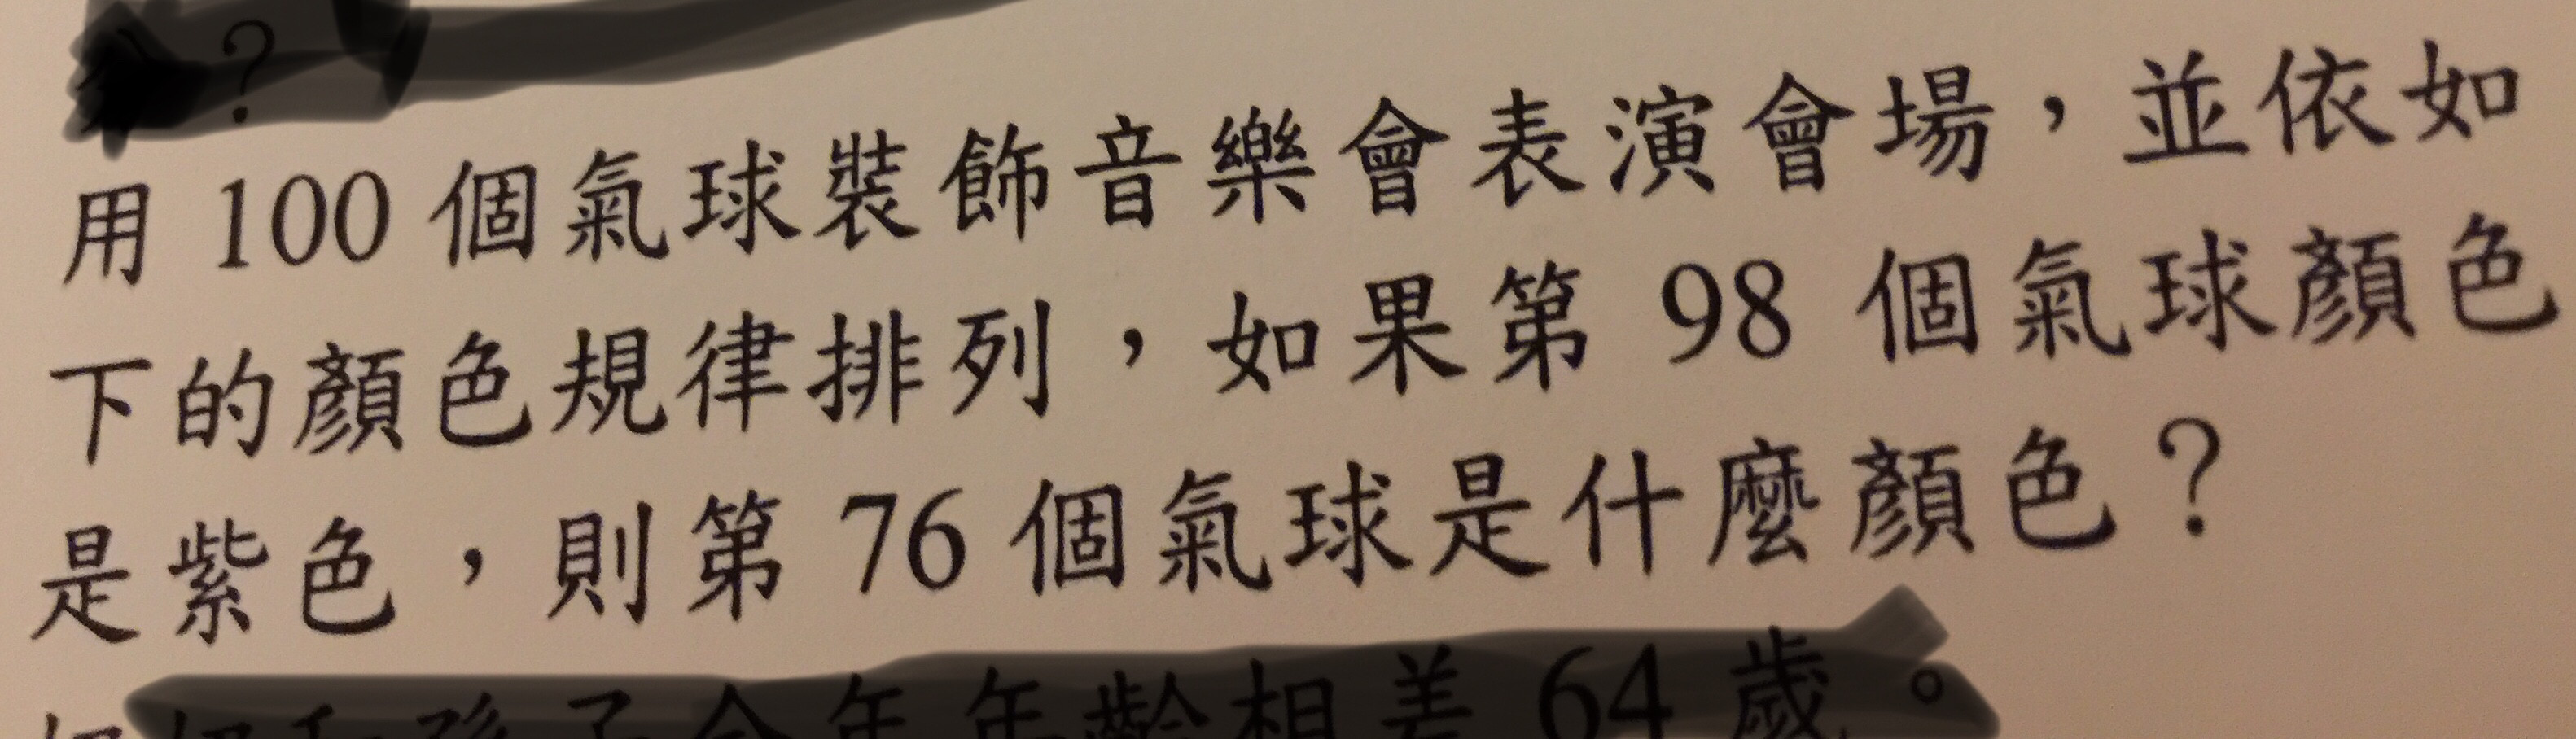 ？
用 100 個氣球裝飾音樂會表演會場，並依如
下的顏色規律排列，如果第 98 個氣球顏色
是紫色，則第 76 個氣球是什麼顏色？
孫子今年年齡相差 64 歲。